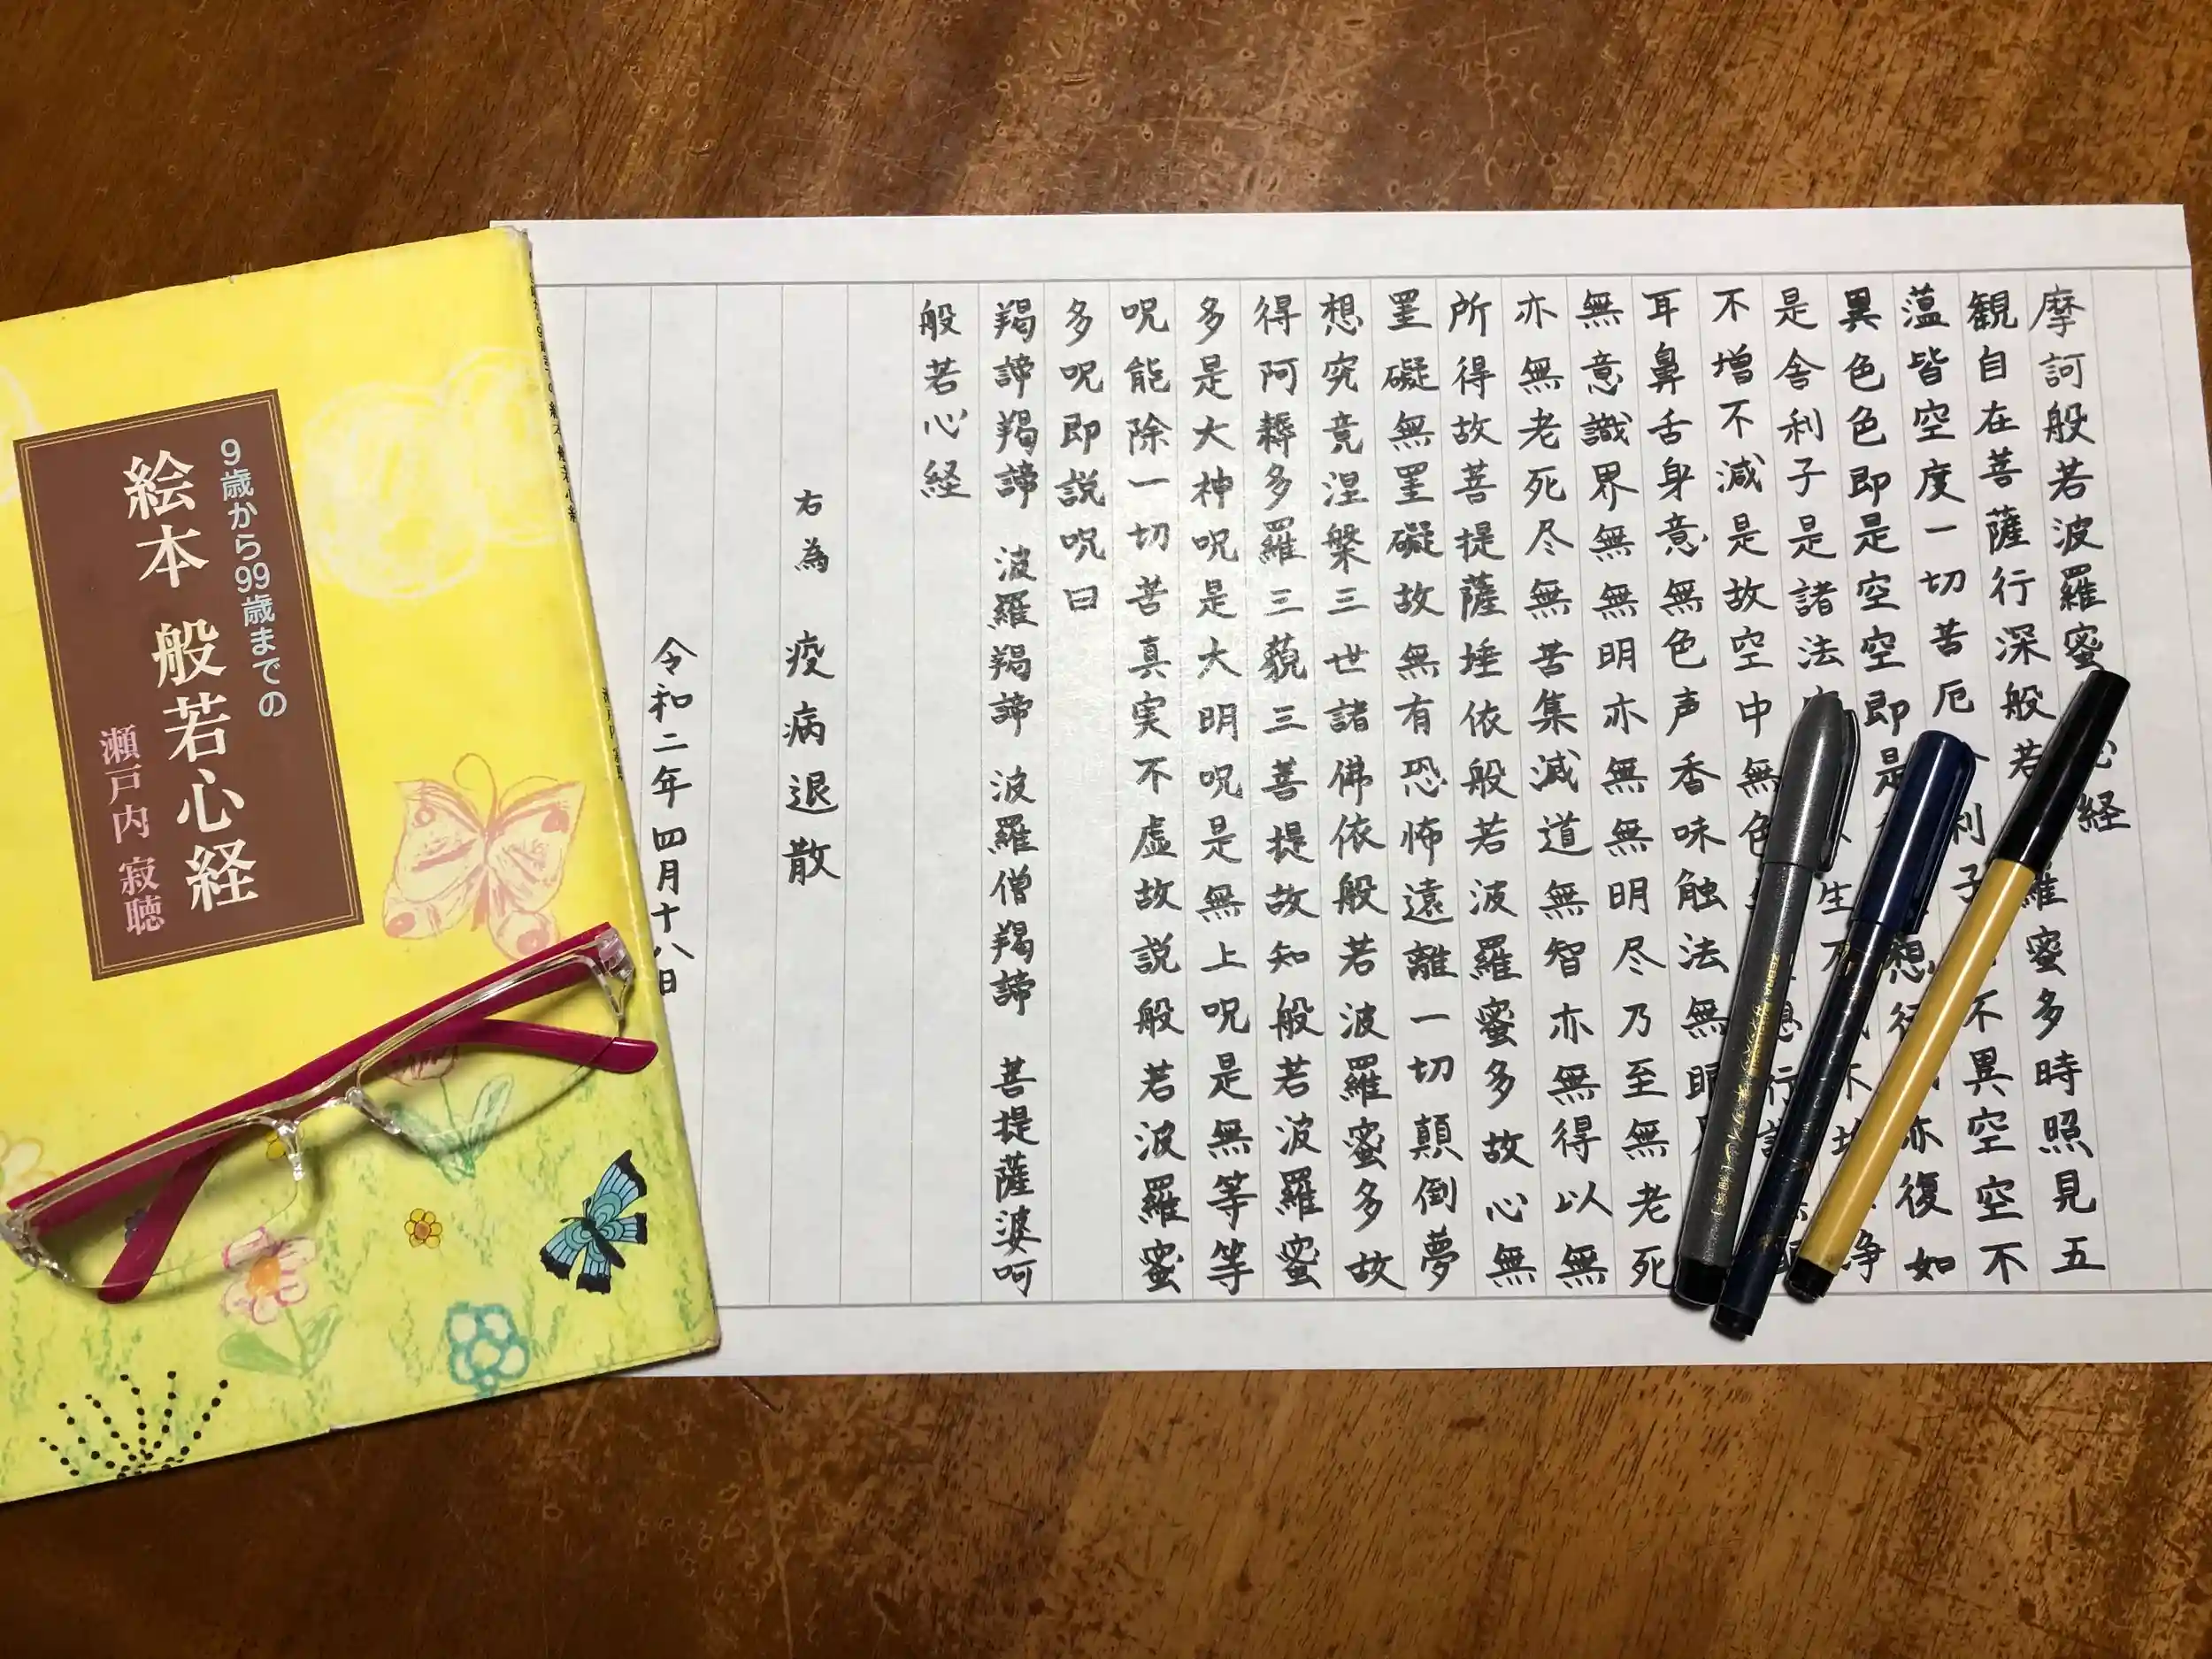 9歳から99歳までの
絵本 般若心経
瀬戸内 寂聴
摩訶般若波羅蜜 心経
観自在菩薩行深般若 羅蜜多時照見五
蘊皆空度一切苦厄 利子 不異空空不
異色色即是空空即是 想行 亦復如
是舎利子是諸法 生不 不垢 浄
不増不減是故空中無色 想行識
耳鼻舌身意無色声香味触法無眼
無意識界無無明亦無無明尽乃至無老死
亦無老死尽無苦集滅道無智亦無得以無
所得故菩提薩埵依般若波羅蜜多故心無
罣礙無罣礙故無有恐怖遠離一切顛倒夢
想究竟涅槃三世諸佛依般若波羅蜜多故
得阿耨多羅三藐三菩提故知般若波羅蜜
多是大神呪是大明呪是無上呪是無等等
呪能除一切苦真実不虚故説般若波羅蜜
多呪即説呪曰
羯諦羯諦 波羅羯諦 波羅僧羯諦 菩提薩婆呵
般若心経
右為 疫病退散
令和二年四月十八日
ZEBRA